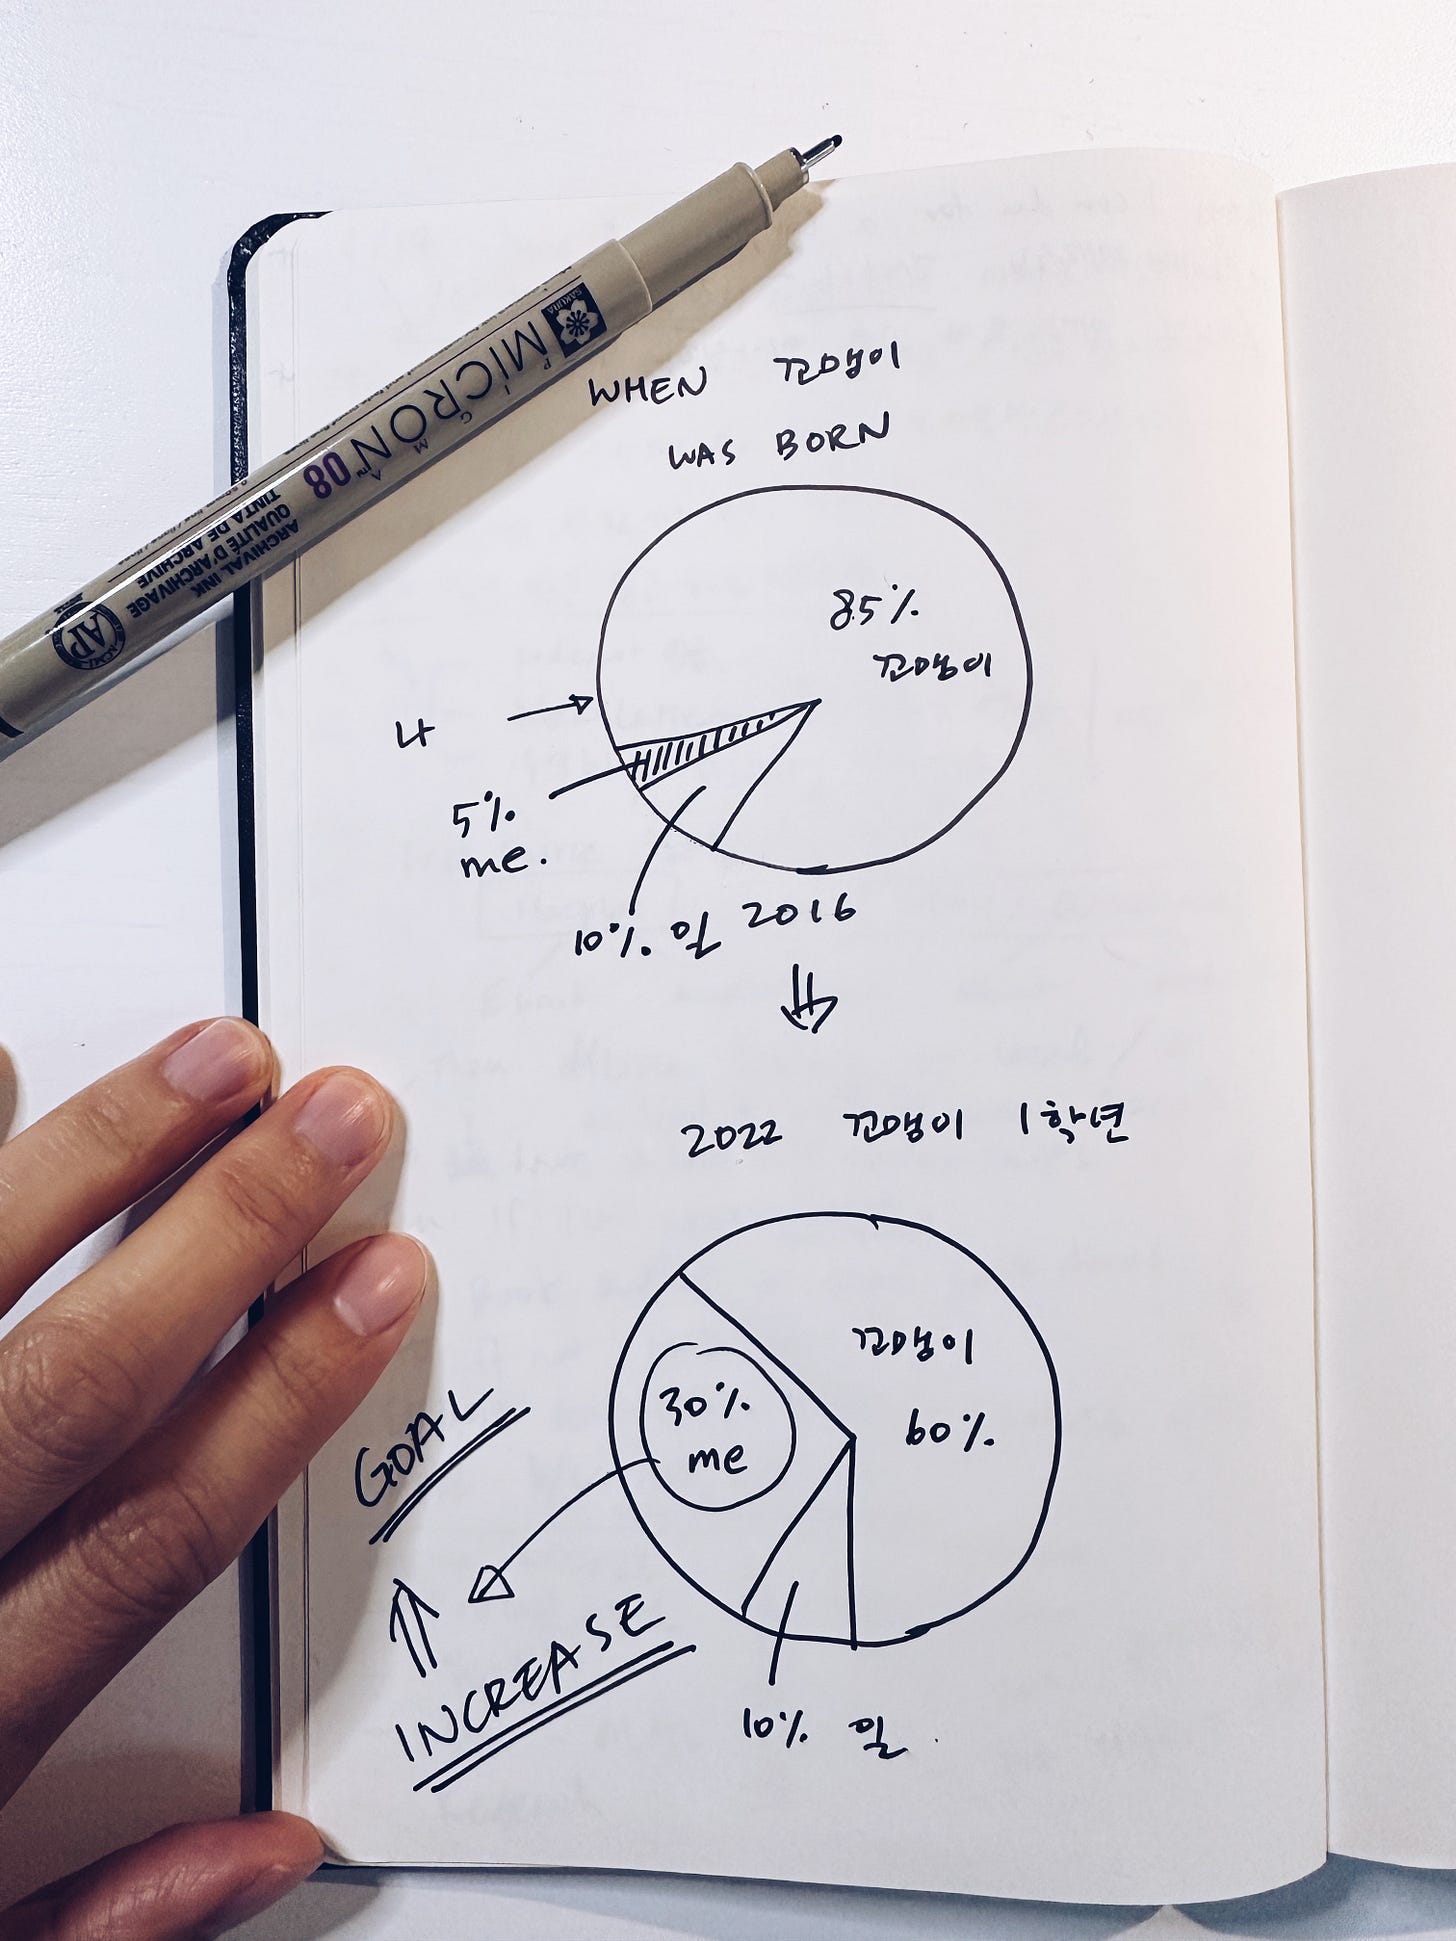 SAKURA
MICRON
PIGMA
08
ARCHIVAL INK
QUALITÉ D'ARCHIVAGE
TINTA DE ARCHIVE
AP
WHEN 꼬맹이
WAS BORN
85%
꼬맹이
나
5%
me.
10% 일
2016
2022 꼬맹이 1학년
꼬맹이
60%
30%
me
GOAL
INCREASE
10% 일.